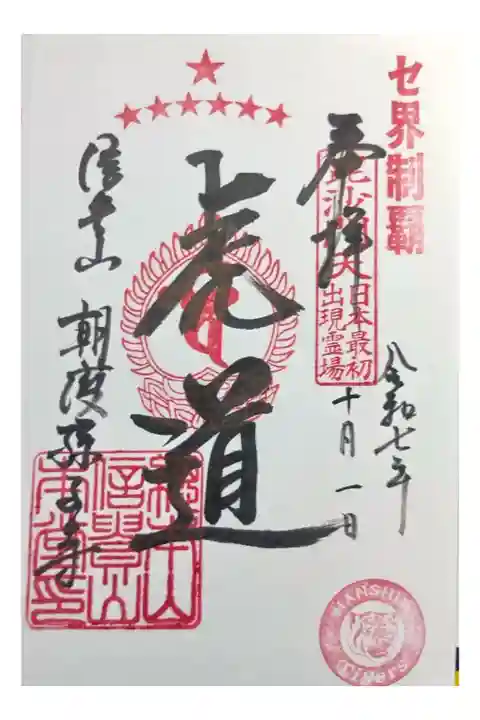 セ界制覇
令和七年
奉拝
毘沙門天日本最初
出現霊場
十月一日
虎道
信貴山 朝護孫子寺
HANSHIN
Tigers